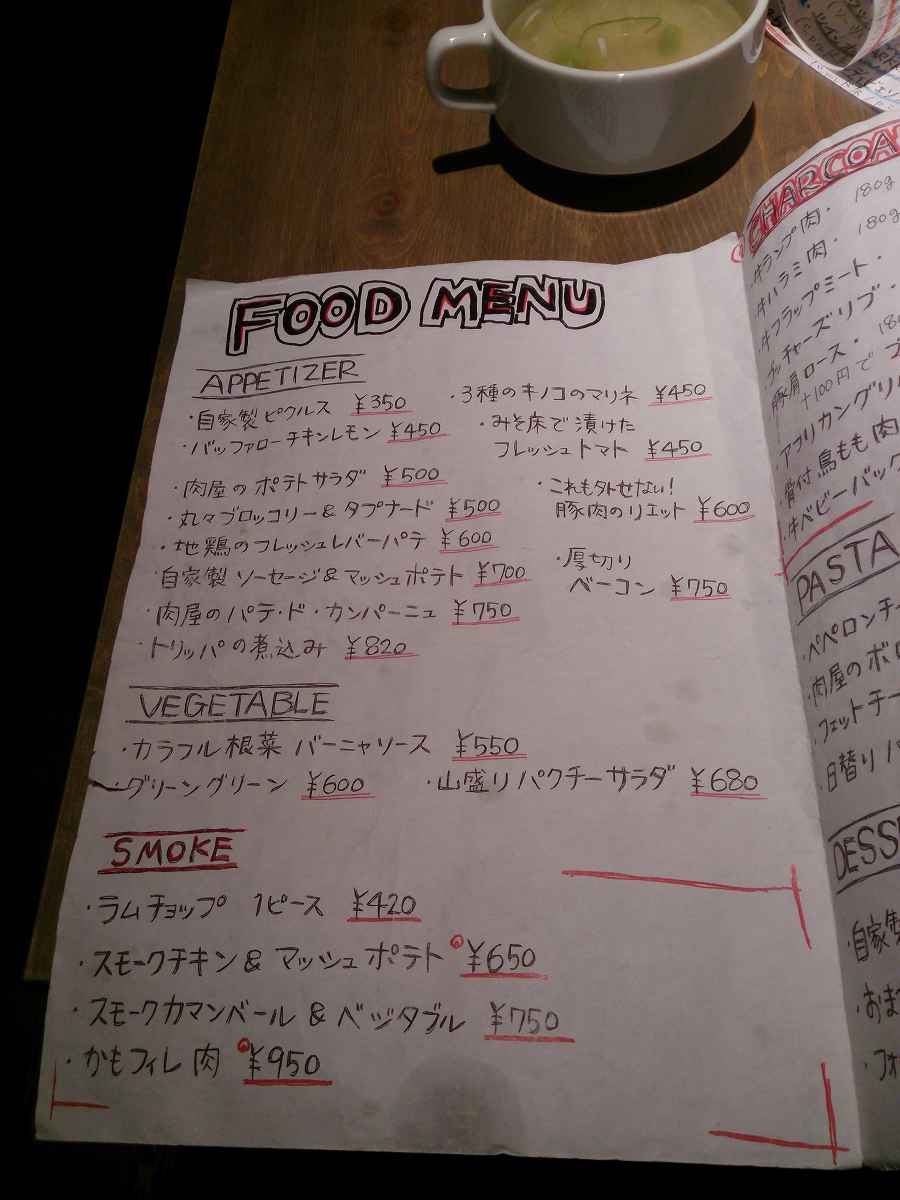 FOOD MENU
APPETIZER
・自家製ピクルス ¥350
・バッファローチキンレモン ¥450
・肉屋のポテトサラダ ¥500
・丸々ブロッコリー&タプナード ¥500
・地鶏のフレッシュレバーパテ ¥600
自家製ソーセージ&マッシュポテト ¥700
・肉屋のパテ・ド・カンパーニュ ¥750
・トリッパの煮込み ¥820
・3種のキノコのマリネ ¥450
・みそ床で漬けた
フレッシュトマト ¥450
・これも外せない!
豚肉のリエット ¥600
・厚切り
ベーコン ¥750
VEGETABLE
・カラフル根菜 バーニャソース ¥550
・グリーングリーン ¥600
・山盛りパクチーサラダ ¥680
SMOKE
・ラムチョップ 1ピース ¥420
・スモークチキン&マッシュポテト ¥650
・スモークカマンベール&ベジタブル ¥750
・かもフィレ肉 ¥950
CHARCOA
・牛ランプ肉・ 180g
・牛ハラミ肉・ 180g
・牛フラップミート・
・ブッチャーズリブ・
豚肩ロース・ 18
+100円で
・アフリカングリ
・骨付鳥もも肉
・牛ベビーバック
PASTA
・ペペロンチー
・肉屋のボロ
・フェットチー
・日替りパ
DESS
・自家製
・おま
・フォ